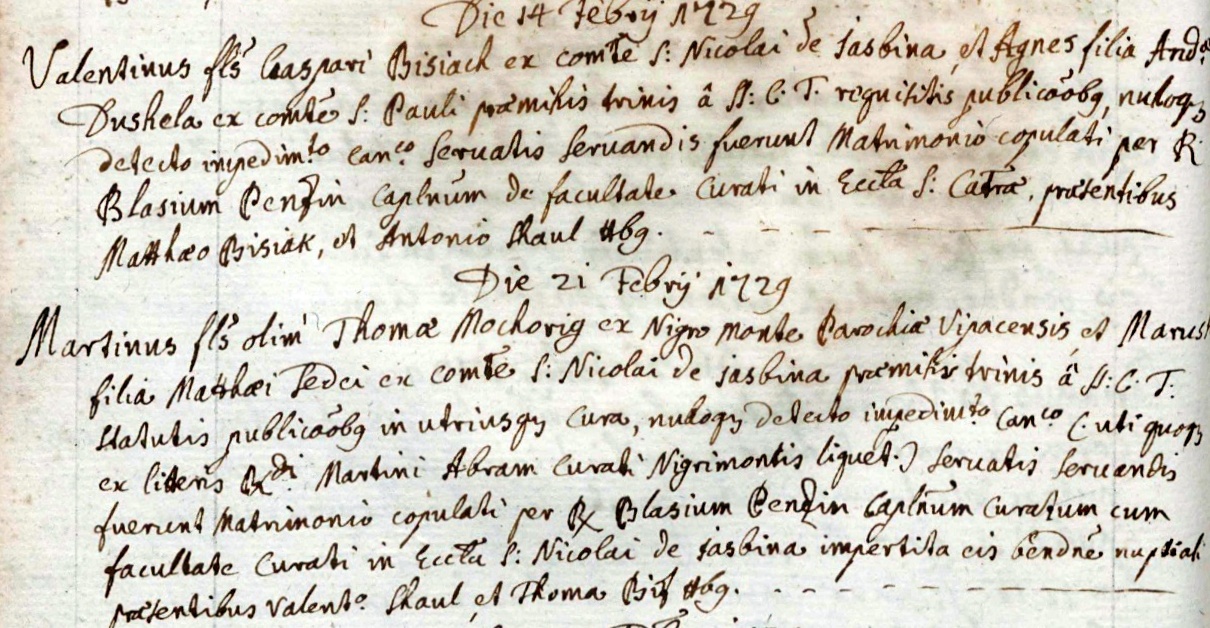 Die 14 Febrÿ 1729
Valentinus fls̃ Caspari Bisiach ex com̃te S: Nicolai de Jasbina, et Agnes filia Andæ
Dushela ex com̃te S: Pauli præmissis trinis â SS: C: T: requisitis publicaõbq, nulloqz
detecto impedimto canco servatis servandis fuerunt Matrimonio copulati per R:
Blasium Penzin Caplnum de facultate Curati in Eccla S: Catræ, præsentibus
Matthæo Bisiak, et Antonio Skaul ttbq. - - - - -
Die 21 Febrÿ 1729
Martinus fls̃ olim Thomæ Mochorig ex Nigro monte Parochiæ Vipacensis, et Marus
filia Matthæi Pedei ex com̃te S: Nicolai de Jasbina præmissis trinis â SS: C: T:
statutis publicaõbq in utriusqz cura, nulloqz detecto impedimto canco (: uti quoqz
ex literis Rdi Martini Abram Curati Nigrimontis liquet:) servatis servandis
fuerunt Matrimonio copulati per R: Blasium Penzin Caplnum Curatum cum
facultate Curati in Eccla S: Nicolai de Jasbina impertita eis bendne nuptiali
præsentibus Valento Skaul, et Thoma Bis ttbq. - - - - -